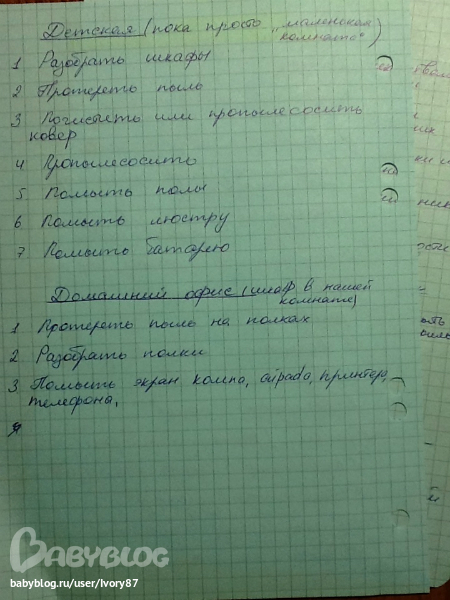 Детская (пока просто „маленькая
комната")
1 Разобрать шкафы
2 Протереть пыль
3 Почистить или пропылесосить
ковер
4 Пропылесосить
5 Помыть полы
6 Помыть люстру
7 Помыть батарею
Домашний офис (шкаф в нашей
комнате)
1 Протереть пыль на полках
2 Разобрать полки
3 Помыть экран компа, aipada, принтера,
телефона,
BABYBLOG
babyblog.ru/user/Ivory87